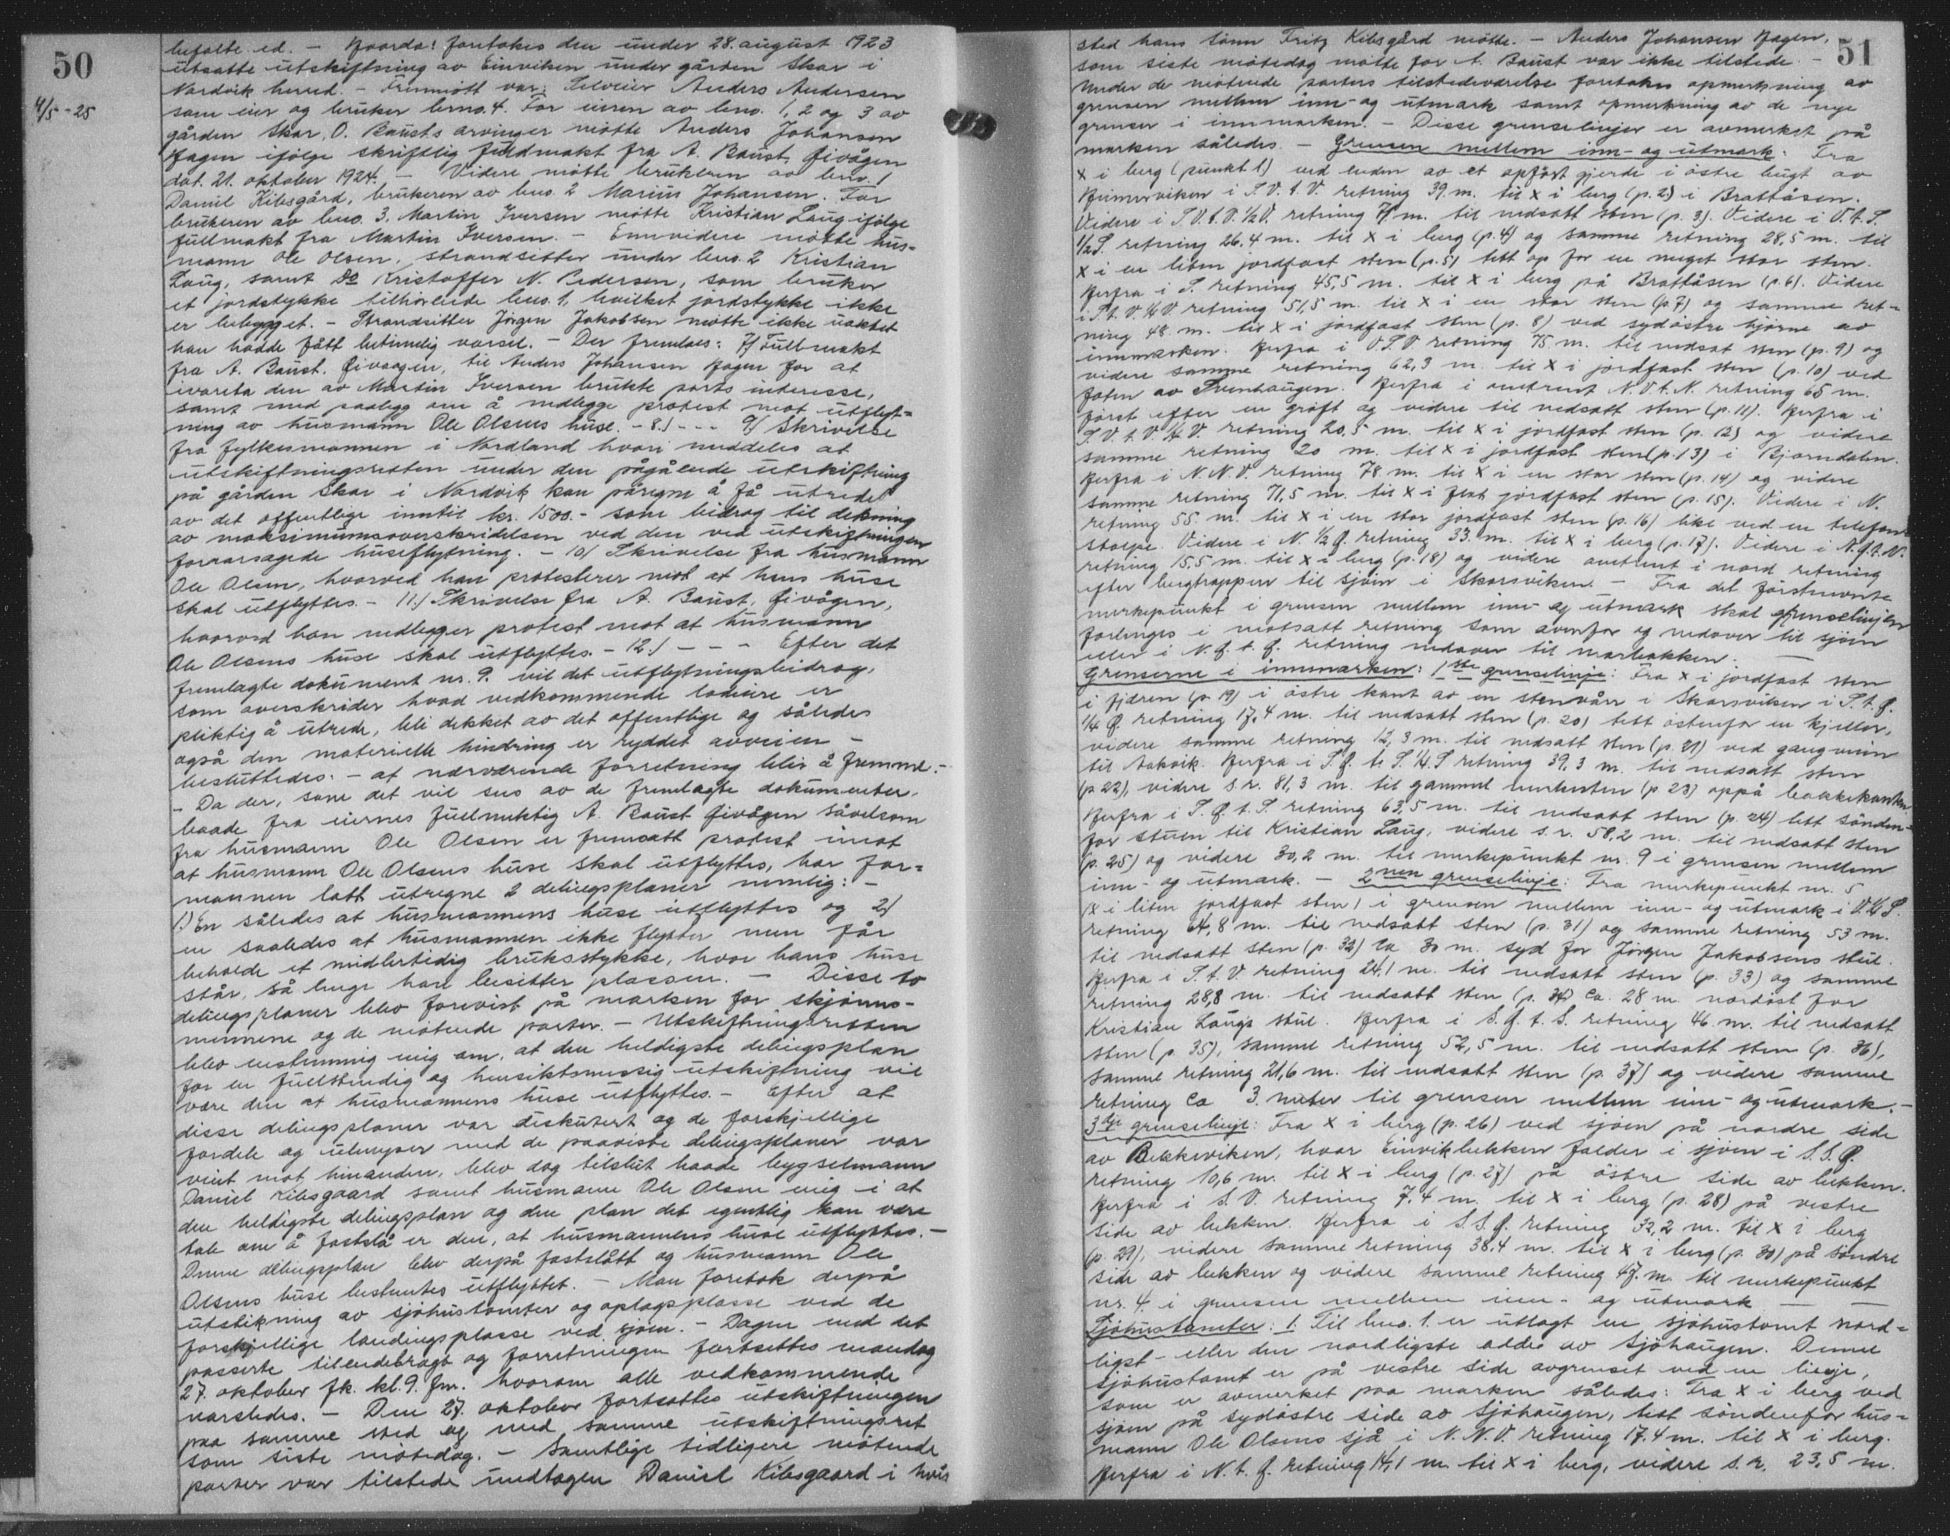 50
4/5-25
befalte ed. - Hvorda: foretokes den under 28. august 1923
utsatte utskiftning av Einviken under gården Skar i
Nordvik herred. - Fremmøtt var: Selveier Anders Andersen
som eier og bruker brno. 4. For eieren av bno. 1, 2 og 3 av
gården Skar, O. Bausts arvinger møtte Anders Johansen
Hagen ifølge skriftlig fuldmakt fra A. Baust, Givågen
dat. 21. oktober 1924. - Videre møtte brukeren av bno. 1
Daniel Kibsgård, brukeren av bno. 2 Marius Johansen. For
brukeren av bno. 3, Martin Iversen møtte Kristian Laug ifølge
fullmakt fra Martin Iversen. - Ennvidere møtte hus-
mann Ole Olsen, strandsitter under bno. 2 Kristian
Laug, samt Do Kristoffer N. Pedersen, som bruker
et jordstykke tilhørende bno. 1, hvilket jordstykke ikke
er bebygget. - Strandsitter Jørgen Jakobsen møtte ikke uaktet
han hadde fått betimelig varsel. - Der fremlaes: 7/ Fullmakt
fra A. Baust, Givaagen, til Anders Johansen Hagen for at
ivareta den av Martin Iversen brukte parts interesse,
samt med paalegg om å nedlegge protest mot utflyt-
ning av husmann Ole Olsens huse. - 8.) - - - 9/ Skrivelse
fra fylkesmannen i Nordland hvori meddeles at
utskiftningsretten under den pågående utskiftning
på gården Skar i Nordvik kan påregne å få utredet
av det offentlige inntil kr. 1500.- som bidrag til dekning
av maksimumsoverskridelsen ved den ved utskiftningen
forårsagede huseflytning. - 10/ Skrivelse fra husmann
Ole Olsen, hvorved han protesterer mot at hans huse
skal utflyttes. - 11.) Skrivelse fra A. Baust, Givågen,
hvorved han nedlegger protest mot at husmann
Ole Olsens huse skal utflyttes. - 12.) - - - Efter det
fremlagte dokument nr. 9. vil det utflytningsbidrag,
som overskrider hvad vedkommende lodeiere er
pliktig å utrede, bli dekket av det offentlige og således
også den materielle hindring er ryddet avveien -
besluttedes: - at nærværende forretning blir å fremme. -
- Da der, som det vil sees av de fremlagte dokumenter,
baade fra eiernes fuldmektig A. Baust Givågen såvelsom
fra husmann Ole Olsen er fremsatt protest imot
at husmann Ole Olsens huse skal utflyttes, har for-
mannen latt utregne 2 delingsplaner nemlig: -
1.) En således at husmannens huse utflyttes og 2/
en saaledes at husmannen ikke flytter men får
beholde et midlertidig bruksstykke, hvor hans huse
står, så lenge han besitter plassen. - Disse to
delingsplaner blev forevist på marken for skjønns-
mennene og de møtende parter. - Utskiftningsretten
blev enstemmig enig om, at den heldigste delingsplan
for en fuldstendig og hensiktsmessig utskiftning vil
være den at husmannens huse utflyttes. - Efter at
disse delingsplaner var diskutert og de forskjellige
fordele og ulemper med de paaviste delingsplaner var
veiet mot hinanden, blev dog tilslut baade bygselmann
Daniel Kibsgaard samt husmann Ole Olsen enig i at
den heldigste delingsplan og den plan det egentlig kan være
tale om å fastslå er den, at husmannens huse utflyttes. -
Denne delingsplan blev derpå fastslått og husmann Ole
Olsens huse bestemtes utflyttet. - Man foretok derpå
utstikning av sjøhustomter og oplagsplasse ved de
forskjellige landingsplasse ved sjøen. - Dagen med det
passerte tilendebragt og forretningen fortsettes mandag
27. oktober fk. kl. 9. fm. hvorom alle vedkommende
varsledes. - Den 27. oktober fortsattes utskiftningen
paa samme sted og med samme utskiftningsret
som siste møtedag. - Samtlige tidligere møtende
parter var tilstede undtagen Daniel Kibsgaard i hvis
51
sted hans sønn Fritz Kibsgård møtte. - Anders Johansen Hagen,
som siste møtedag møtte for A. Baust var ikke tilstede. -
Under de møtende parters tilstedeværelse foretokes opmerkning av
grensen mellem inn- og utmark samt opmerkning av de nye
grenser i innmarken. - Disse grenselinjer er avmerket på
marken således. - Grensen mellem inn- og utmark: Fra
x i berg (punkt 1) ved enden av et opført gjerde i østre bugt av
i S.V.t.V. retning 39 m. til x i berg (p. 2) i Brattåsen.
Videre i S.V.t.V.½V. retning 71 m. til nedsatt sten (p. 3). Videre i V.t.S.
½S. retning 26,4 m. til x i berg (p. 4) og samme retning 28,5 m. til
x i en liten jordfast sten (p. 5) tett op for en meget stor sten.
Herfra i S. retning 45,5 m. til x i berg på Brattåsen (p. 6). Videre
i S.t.V.¼V retning 51,5 m. til x i en stor sten (p. 7) og samme ret-
ning 48 m. til x i jordfast sten (p. 8) ved sydøstre hjørne av
innmarken. Herfra i V.S.V retning 75 m. til nedsat sten (p. 9) og
videre samme retning 62,3 m. til x i jordfast sten (p. 10) ved
foten av Svenhaugen. Herfra i omtrent N.V.t.N. retning 65 m.
føret efter en grøft og videre til nedsatt sten (p. 11). Herfra i
S.V.t.V.¼V. retning 20,5 m. til x i jordfast sten (p. 12) og videre
samme retning 20 m. til x i jordfast sten (p. 13) i Bjørndalen.
Herfra i N.N.V. retning 78 m. til x i en stor sten (p. 14) og videre
samme retning 71,5 m. til x i flat jordfast sten (p. 15). Videre i N.
retning 55 m. til x i en stor jordfast sten (p. 16) like ved en telefon-
stolpe. Videre i N.½Ø. retning 33 m. til x i berg (p. 17). Videre i N.Ø.t.N.
retning 15,5 m. til x i berg (p. 18) og videre omtrent i nord retning
efter bergtoppen til sjøen i Skarsviken. - Fra det førstnevnte
merkepunkt i grensen mellem inn- og utmark skal grenselinjen
forlenges i motsatt retning som ovenfor og nedover til sjøen
eller i N.Ø.t.Ø. retning nedover til marbakken. -
Grenserne i innmarken: 1ste grenselinje: Fra x i jordfast sten
i fjæren (p. 19) i østre kant av en stenvårr i Skarsviken i S.t.Ø.
¼Ø. retning 17,4 m. til nedsatt sten (p. 20) tett østenfor en kjeller,
videre samme retning 12,3 m. til nedsatt sten (p. 21) ved gangveien
til Aakvik. Herfra i S.Ø.t.S.¼S retning 39,3 m. til nedsatt sten
(p. 22), videre s.r. 81,3 m. til gammel merkesten (p. 23) oppå bakkekanten.
Herfra i S.Ø.t.S. retning 63,5 m. til nedsatt sten (p. 24) tett sønden-
for stuen til Kristian Laug, videre s.r. 58,2 m. til nedsatt sten
(p. 25) og videre 30,2 m. til merkepunkt nr. 9 i grensen mellem
inn- og utmark. - 2nen grenselinje: Fra merkepunkt nr. 5
(x i liten jordfast sten) i grensen mellem inn- og utmark i V.½S.
retning 64,8 m. til nedsatt sten (p. 31) og samme retning 53 m.
til nedsatt sten (p. 32) ca 30 m. syd for Jørgen Jakobsens stue.
Herfra i S.t.V. retning 24,1 m. til nedsatt sten (p. 33) og samme
retning 28,8 m. til nedsatt sten (p. 34) ca. 28 m. nordøst for
Kristian Laugs stue. Herfra i S.Ø.t.S. retning 46 m. til nedsatt
sten (p. 35), samme retning 52,5 m. til nedsatt sten (p. 36),
samme retning 21,6 m. til nedsatt sten (p. 37) og videre samme
retning ca 3. meter til grensen mellem inn- og utmark. -
3dje grenselinje: Fra x i berg (p. 26) ved sjøen på nordre side
av Bekkeviken, hvor Einvikbekken falder i sjøen i S.S.Ø.
retning 10,6 m. til x i berg (p. 27) på østre side av bekken.
Herfra i S.V. retning 7,4 m. til x i berg (p. 28) på vestre
side av bekken. Herfra i S.S.Ø. retning 32,2 m. til x i berg
(p. 29), videre samme retning 38,4 m. til x i berg (p. 30) på søndre
side av bekken og videre samme retning 47 m. til merkepunkt
nr. 4 i grensen mellem inn- og utmark - -
Sjøhustomter: 1. Til bno. 1. er utlagt en sjøhustomt nord-
ligst - eller den nordligste odde av Sjøhaugen. Denne
sjøhustomt er på vestre side avgrenset ved en linje,
som er avmerket paa marken således: Fra x i berg ved
sjøen på sydøstre side av Sjøhaugen, tett søndenfor hus-
mann Ole Olsens sjå i N.N.V. retning 17,4 m. til x i berg.
Herfra i N.t.Ø. retning 14,1 m. til x i berg, videre s.r. 23,5 m.